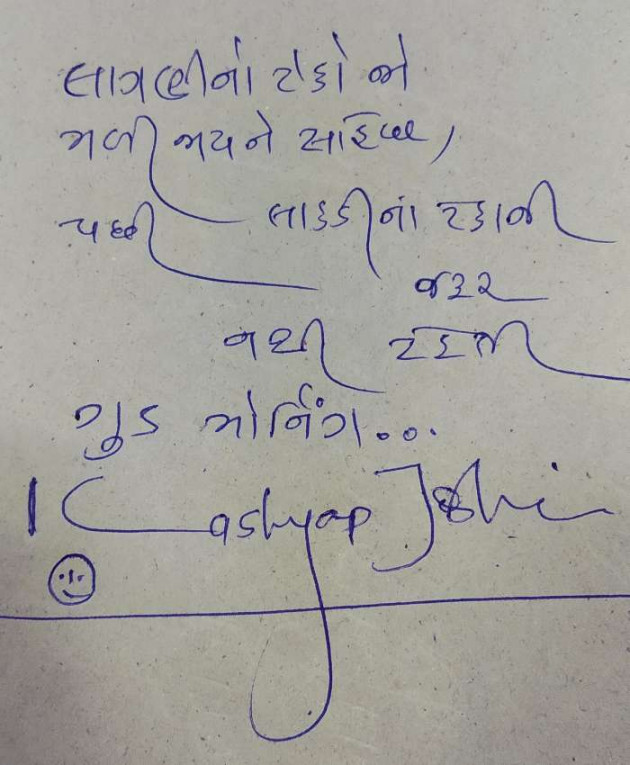 લાગણીનો ટેકો જો
મળી જાયને સાહિબ,
પછી લાકડીનાં ટેકાની
જરૂર
નથી રહેતી
ગુડ મોર્નિંગ...
Kashyap Joshi